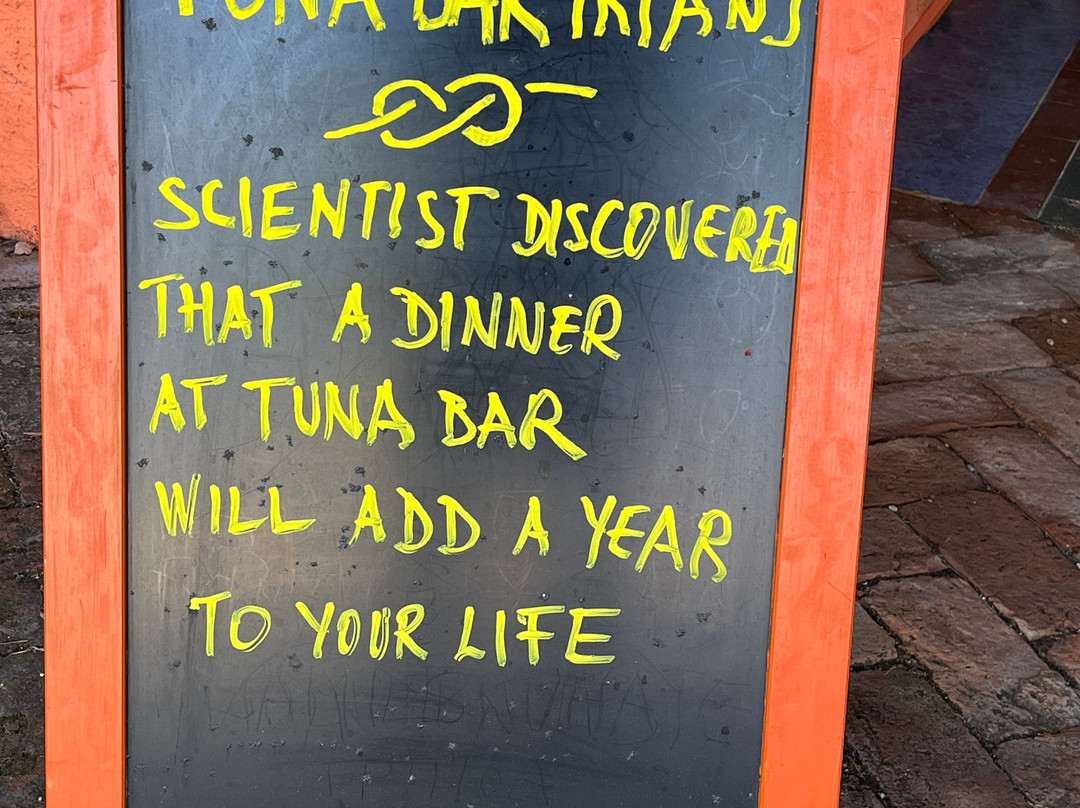 TUNA BAR TRIANS
SCIENTIST DISCOVERED
THAT A DINNER
AT TUNA BAR
WILL ADD A YEAR
TO YOUR LIFE